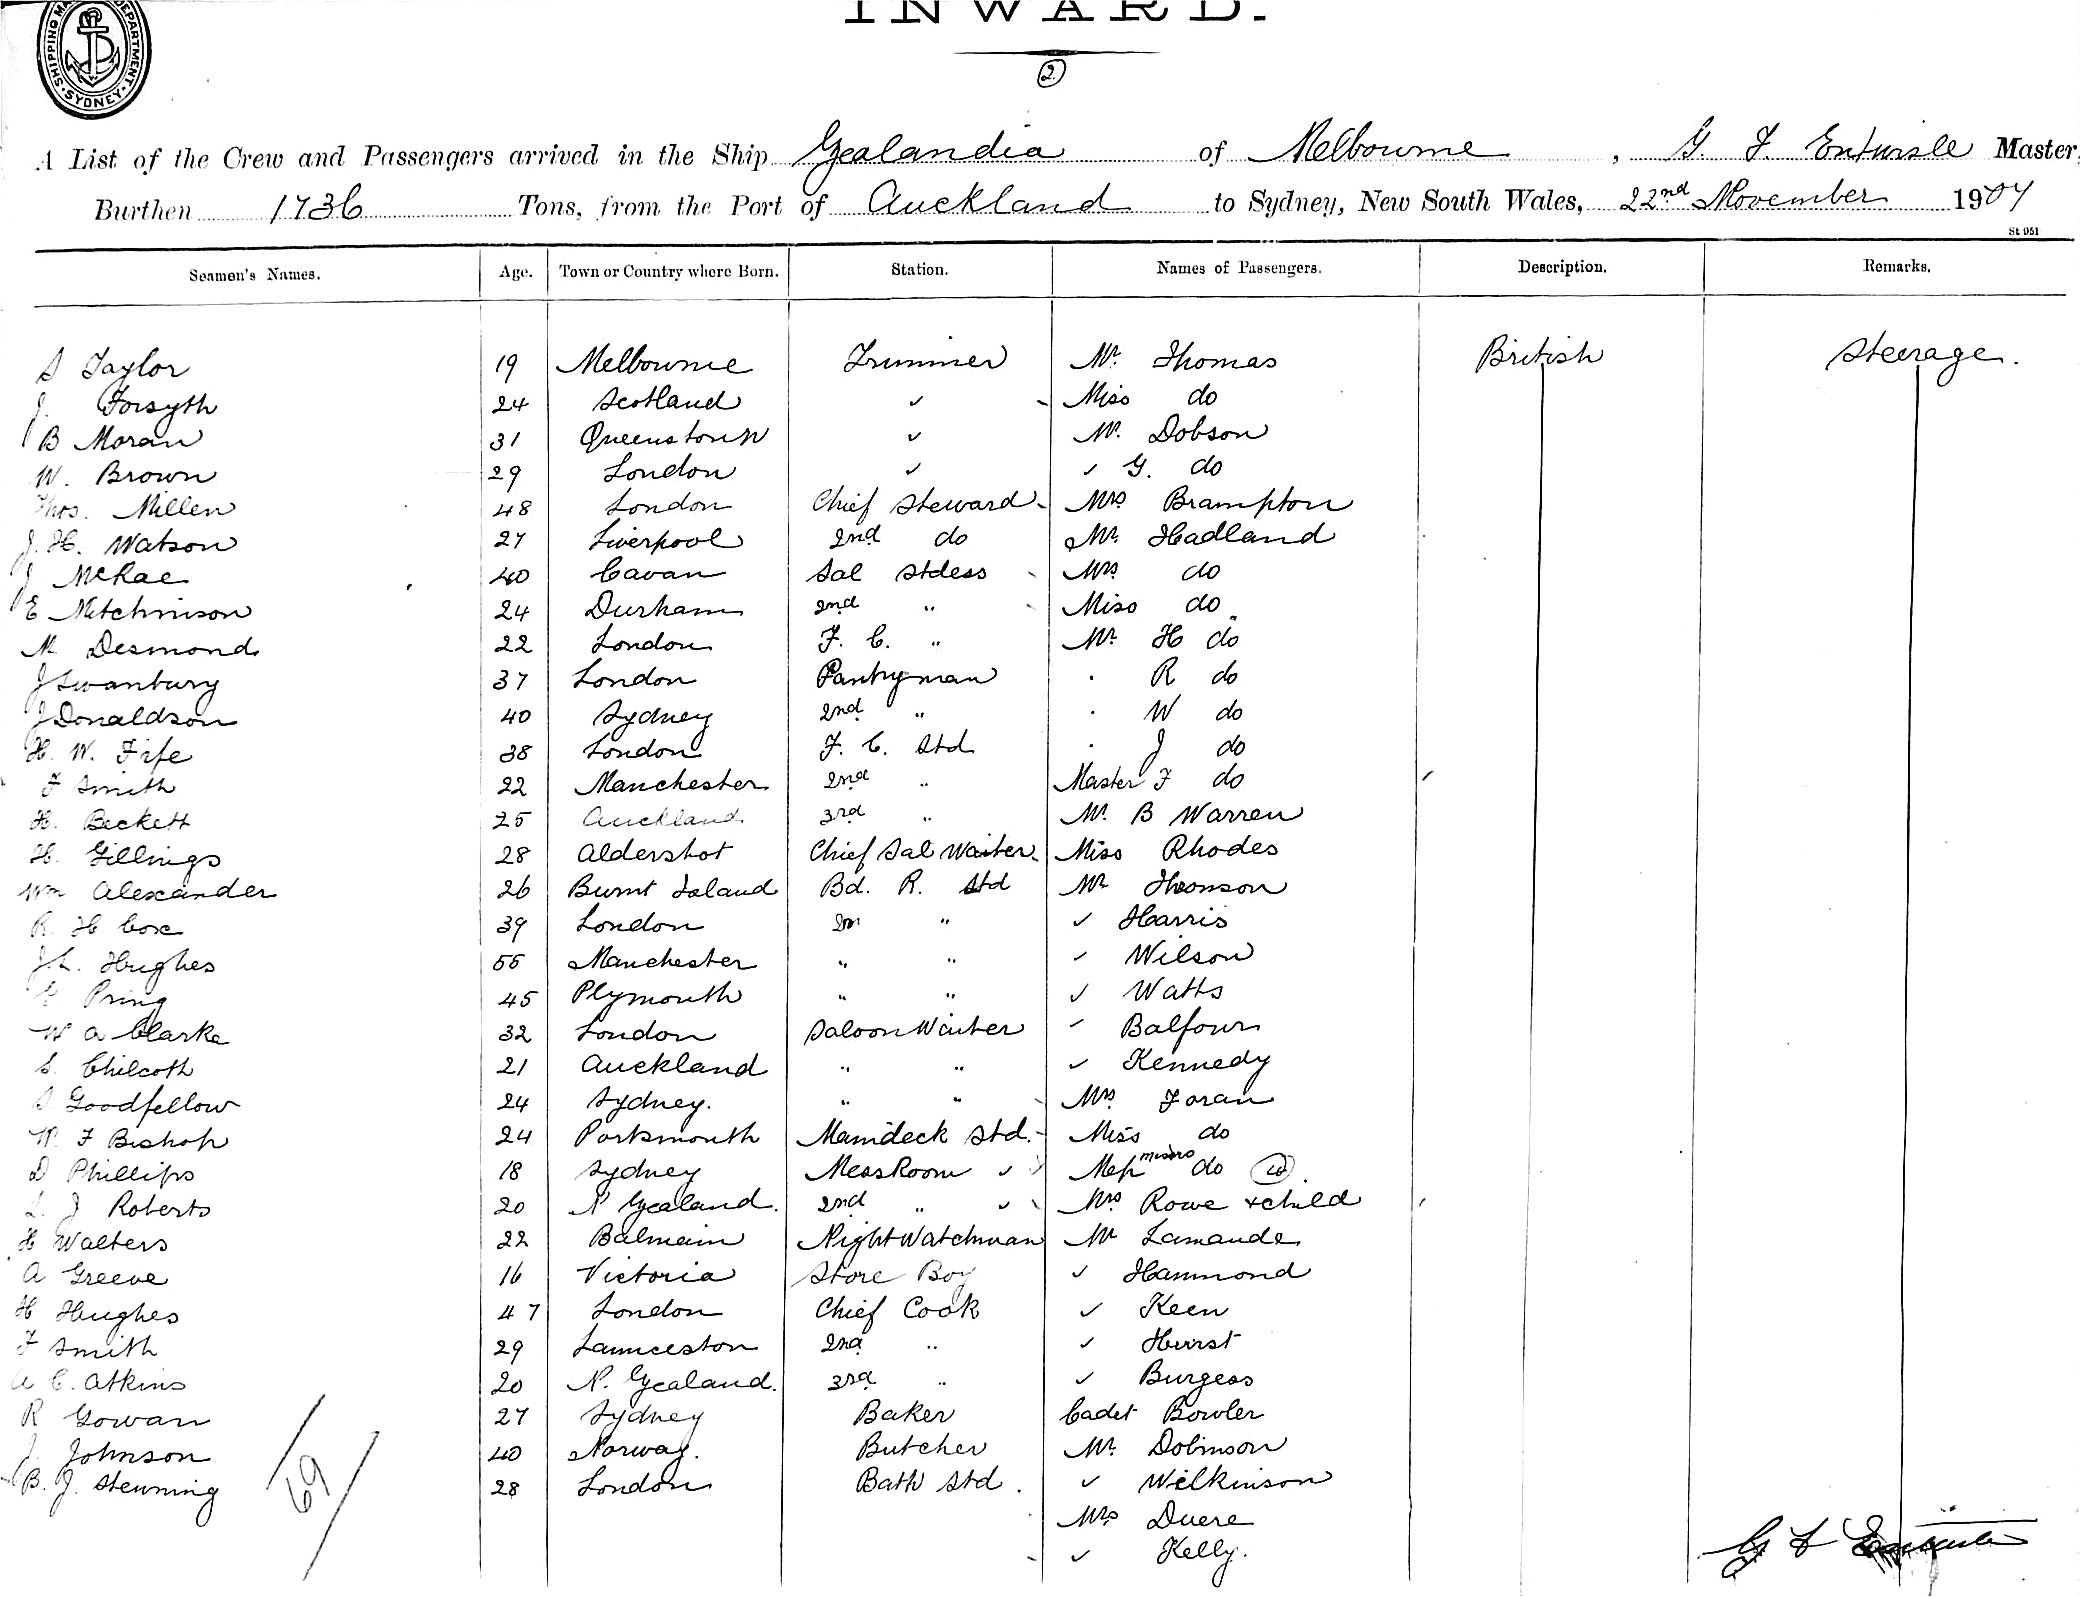 SHIPPING MA DEPARTMENT · SYDNEY ·
INWARD.
2
A List of the Crew and Passengers arrived in the Ship Zealandia of Melbourne, G. F. Entwisle Master,
Burthen 1736 Tons, from the Port of Auckland to Sydney, New South Wales, 22nd November 1904
St 051
Seamen's Names. Age. Town or Country where Born. Station. Names of Passengers. Description. Remarks.
S Taylor 19 Melbourne Trimmer Mr. Thomas British Steerage.
J. Forsyth 24 Scotland ✓ Miss do
B Moran 31 Queenstown ✓ Mr. Dobson
W. Brown 29 London ✓ ✓ G. do
Thos. Millen 48 London Chief Steward Mrs Brampton
J. H. Watson 27 Liverpool 2nd do Mr. Hadland
J McRae 40 Cavan Sal Stdess Mrs do
E Mitchinson 24 Durham 2nd " Miss do
M Desmond 22 London F. C. " Mr. H do
J Swanbury 37 London Pantryman . R do
J Donaldson 40 Sydney 2nd " . W do
H. W. Fife 38 London F. C. Std . J do
F Smith 22 Manchester 2nd " Master F do
H. Beckett 25 Auckland 3rd " Mr. B Warren
H. Gillings 28 Aldershot Chief Sal Waiter Miss Rhodes
Wm Alexander 26 Burnt Island Bd. R. Std Mr Thomson
R. H Cox 39 London " ✓ Harris
J. L. Hughes 55 Manchester " " ✓ Wilson
Pring 45 Plymouth " " ✓ Watts
W A Clarke 32 London Saloon Waiter ✓ Balfour
S. Chilcoth 21 Auckland " " ✓ Kennedy
S Goodfellow 24 Sydney. " " Mrs. Foran
W. F Bishop 24 Portsmouth Maindeck Std. Miss do
D Phillips 18 Sydney Mess Room ✓ do
L. J Roberts 20 N Zealand. 2nd " ✓ Mrs Rowe & child
H Walters 22 Balmain Night Watchman Mr Lamande
A Greeve 16 Victoria Store Boy ✓ Hammond
H Hughes 47 London Chief Cook ✓ Keen
F Smith 29 Launceston 2nd " ✓ Hurst
A C. Atkins 20 N. Zealand. 3rd " ✓ Burgess
R Gowan 27 Sydney Baker Cadet Bowler
J. Johnson 40 Norway. Butcher Mr. Dobinson
B. J. Stenning 28 London Bath Std. ✓ Wilkinson
69
Mrs Duere
✓ Kelly.
G F Entwisle